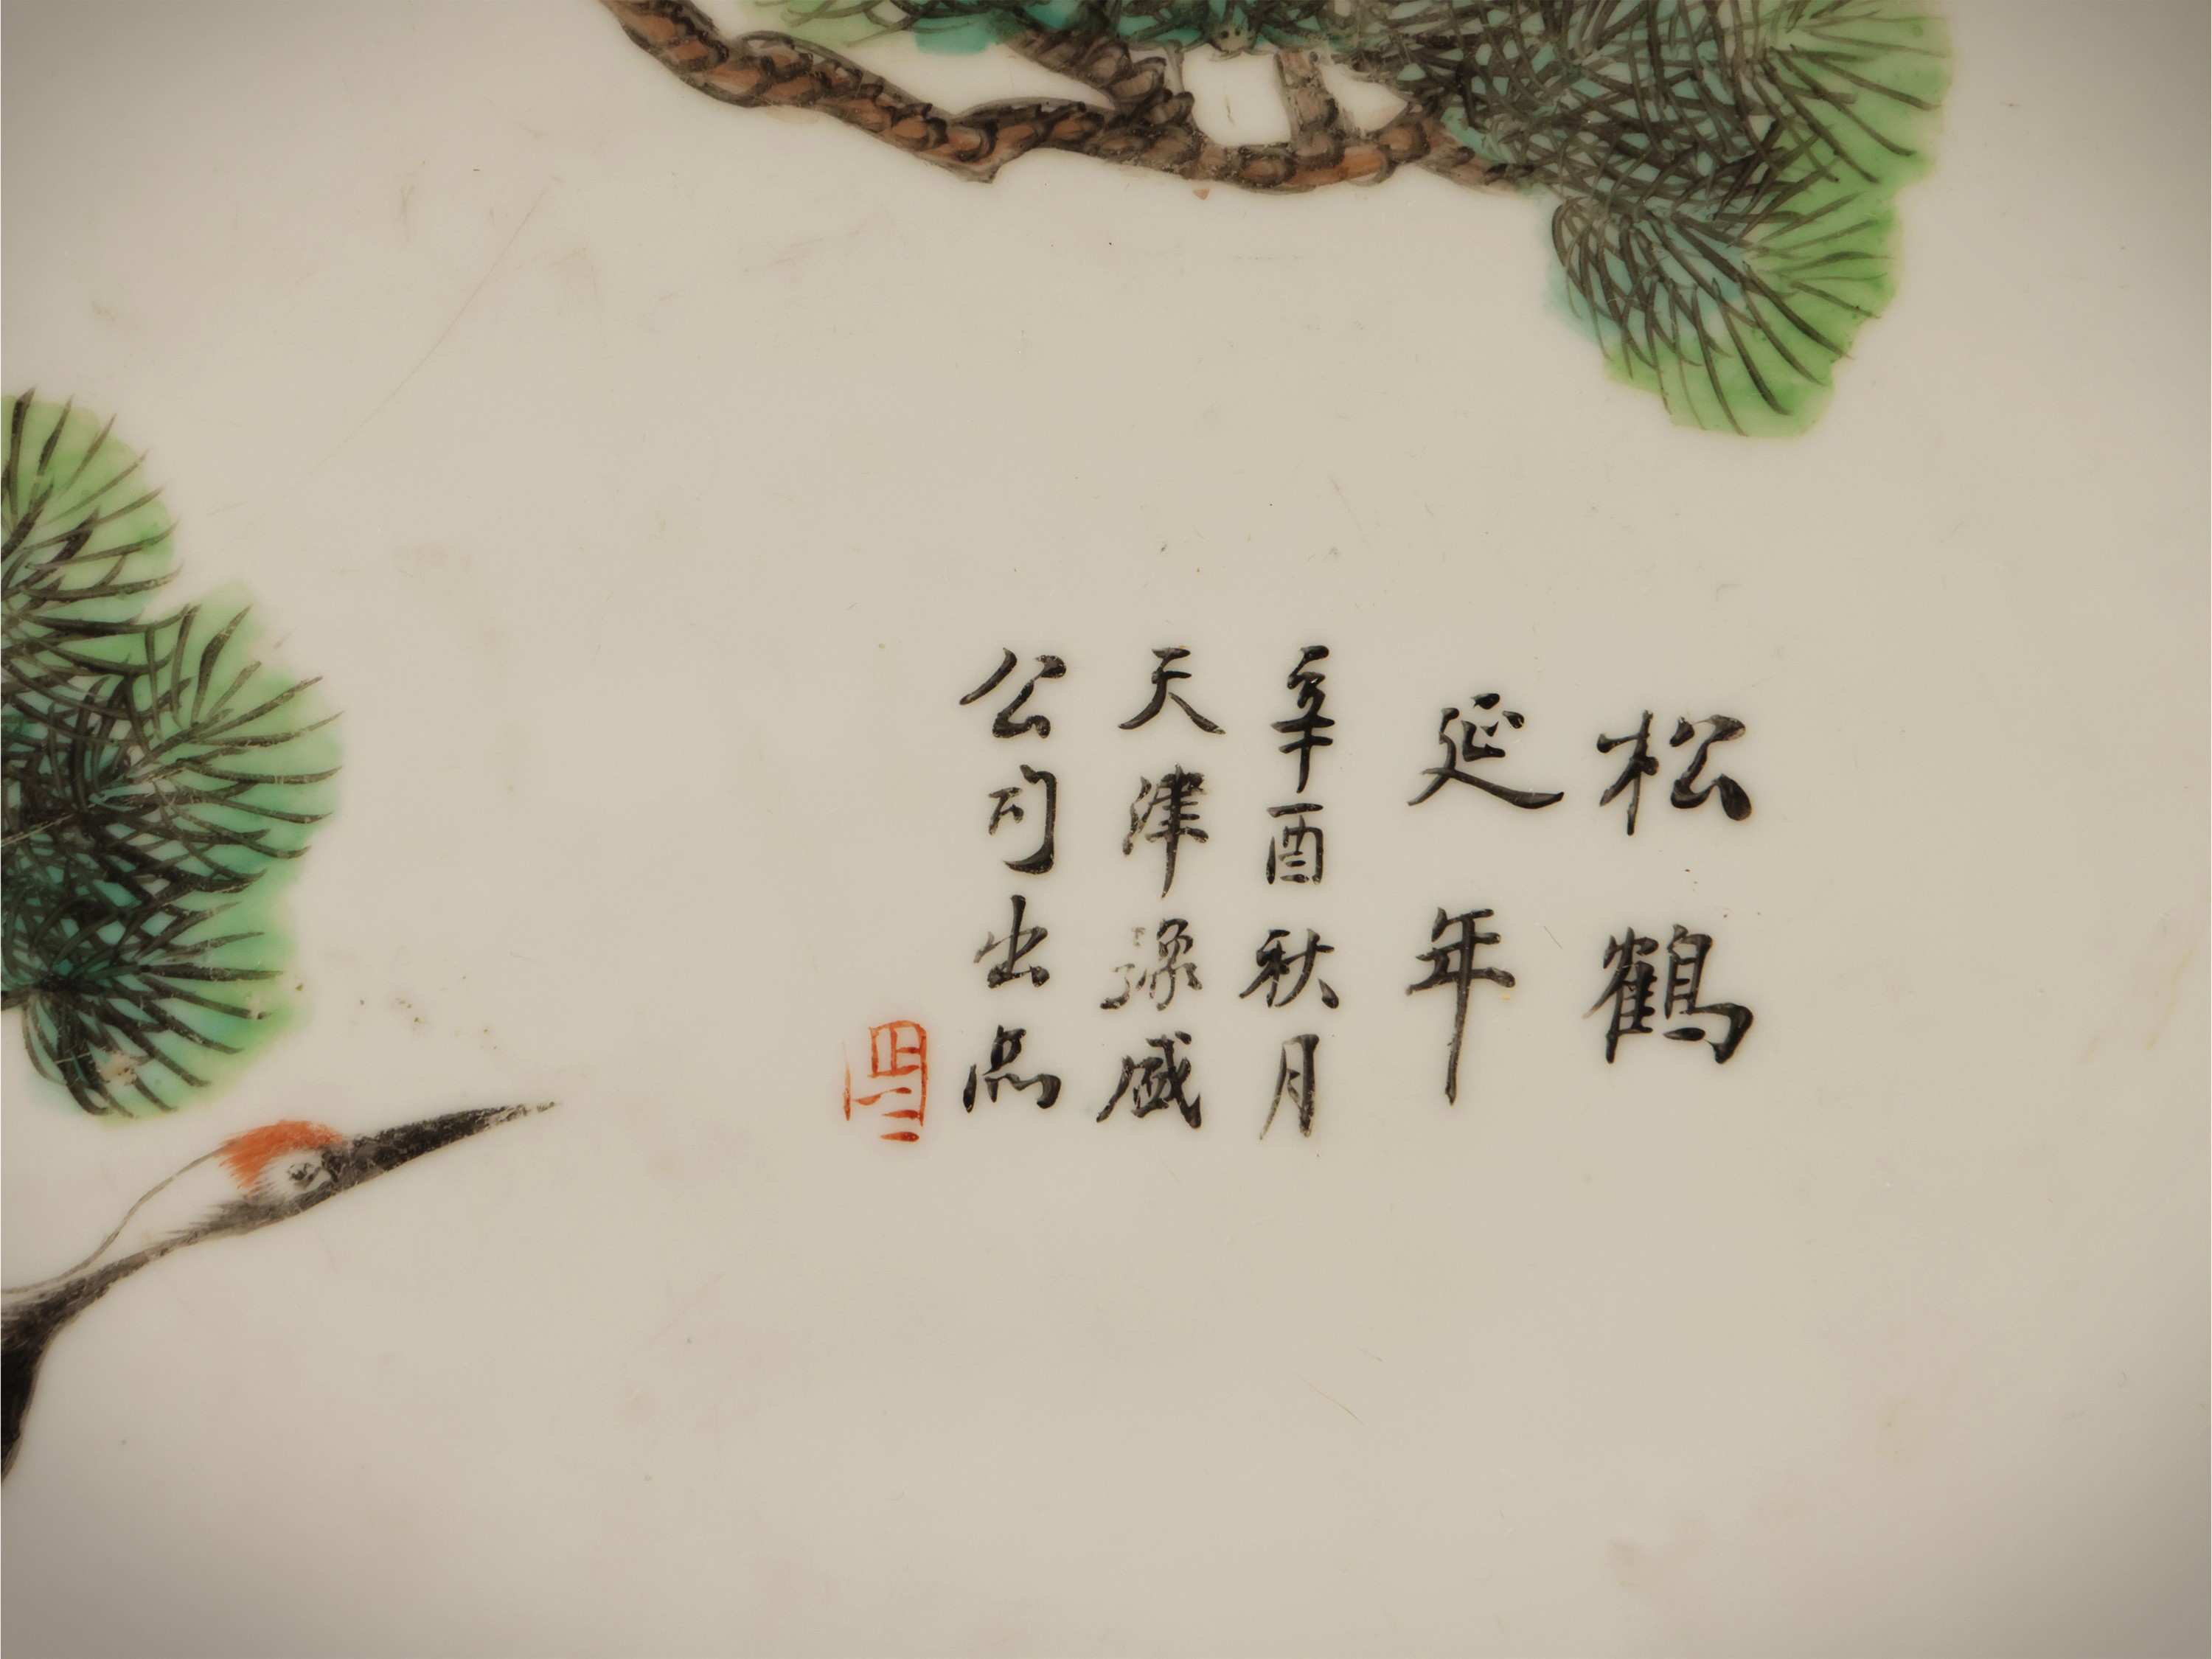 松鶴
延年
辛酉秋月
天津豫盛
公司出品